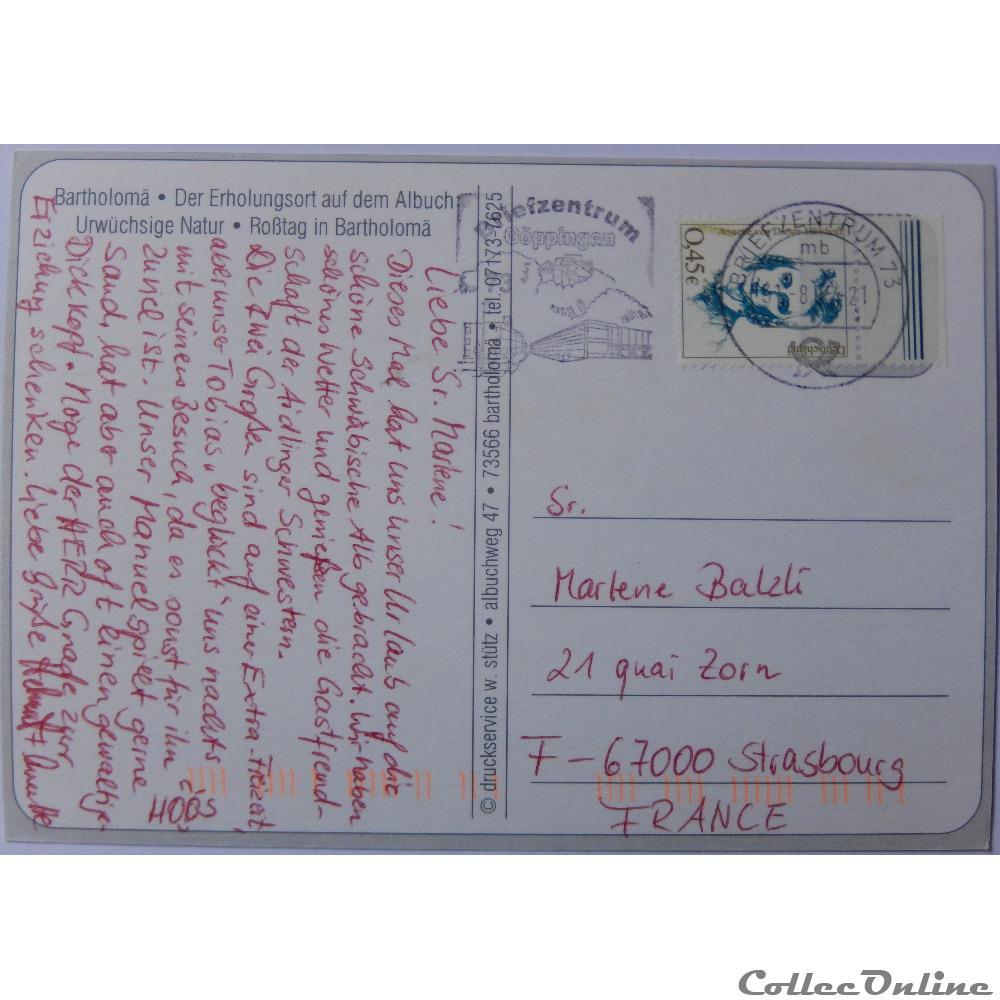 Bartholomä • Der Erholungsort auf dem Albuch
Urwüchsige Natur • Roßtag in Bartholomä
Liebe Sr. Marlene!
Dieses Mal hat uns unser Urlaub auf die
schöne Schwäbische Alb gebracht. Wir haben
schönes Wetter und genießen die Gastfreund-
schaft der Aidlinger Schwestern.
Die zwei Großen sind auf einer Extra-Freizeit,
aber unser Tobias „beglückt" uns nachts
mit seinem Besuch, da es sonst für ihn
zuviel ist. Unser Manuel spielt gerne
Sand, hat aber auch oft einen gewaltigen
Dickkopf. Möge der HERR Gnade zur
Erziehung schenken. Liebe Grüße Helmut +
© druckservice w. stütz • albuchweg 47 • 73566 bartholomä • tel. 07173-7625
Briefzentrum
Göppingen
BRIEFZENTRUM 73
mb
0,45€
Deutschland
Sr.
Marlene Balzli
21 quai Zorn
F-67000 Strasbourg
FRANCE
CollecOnline